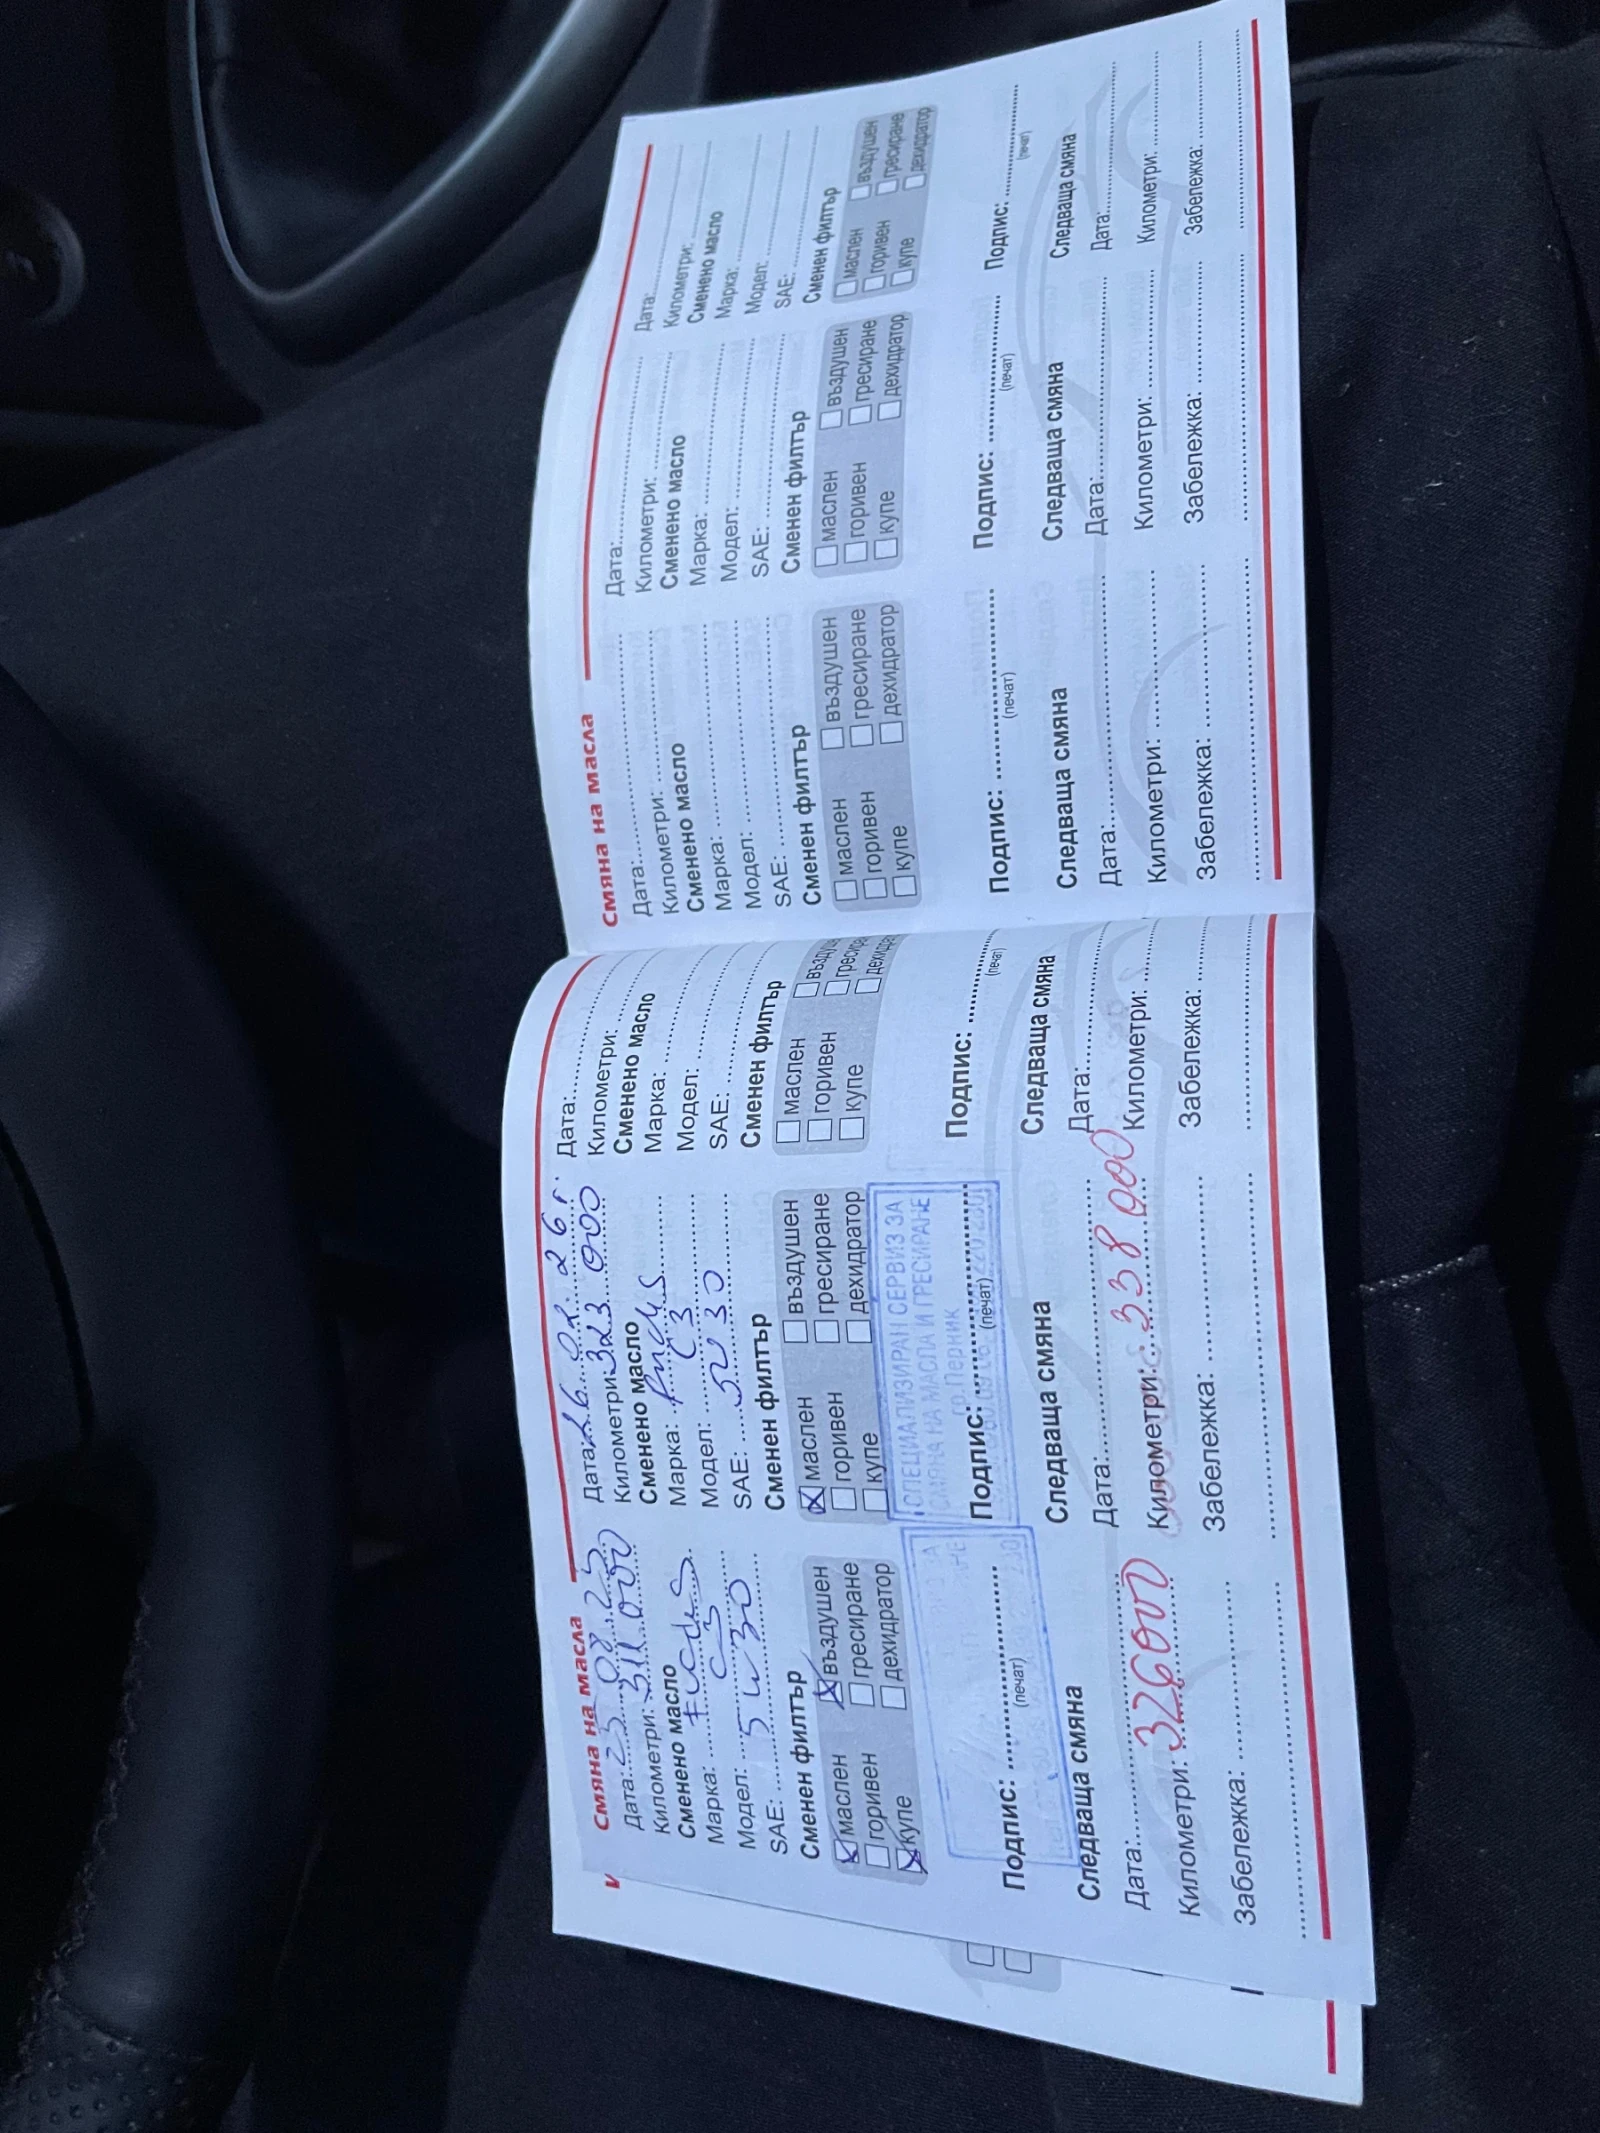 Смяна на масла
Дата: 25.08.25
Километри: 311000
Сменено масло
Марка: Fuchs
Модел: C3
SAE: 5w30
Сменен филтър
маслен въздушен
горивен гресиране
купе дехидратор
Подпис:
(печат)
Следваща смяна
Дата:
Километри: 326000
Забележка:
Дата: 26.02.26г.
Километри: 323000
Сменено масло
Марка: Fuchs
Модел: C3
SAE: 5W30
Сменен филтър
маслен въздушен
горивен гресиране
купе дехидратор
СПЕЦИАЛИЗИРАН СЕРВИЗ ЗА
СМЯНА НА МАСЛА И ГРЕСИРАНЕ
гр. Перник
Подпис:
(печат)
Следваща смяна
Дата:
Километри: 338000
Забележка:
Дата:
Километри:
Сменено масло
Марка:
Модел:
SAE:
Сменен филтър
маслен
горивен
купе
Подпис:
(печат)
Следваща смяна
Дата:
Километри:
Забележка:
Смяна на масла
Дата:
Километри:
Сменено масло
Марка:
Модел:
SAE:
Сменен филтър
маслен въздушен
горивен гресиране
купе дехидратор
Подпис:
(печат)
Следваща смяна
Дата:
Километри:
Забележка:
Дата:
Километри:
Сменено масло
Марка:
Модел:
SAE:
Сменен филтър
маслен въздушен
горивен гресиране
купе дехидратор
Подпис:
(печат)
Следваща смяна
Дата:
Километри:
Забележка:
Дата:
Километри:
Сменено масло
Марка:
Модел:
SAE:
Сменен филтър
маслен въздушен
горивен гресиране
купе дехидратор
Подпис:
(печат)
Следваща смяна
Дата:
Километри:
Забележка: